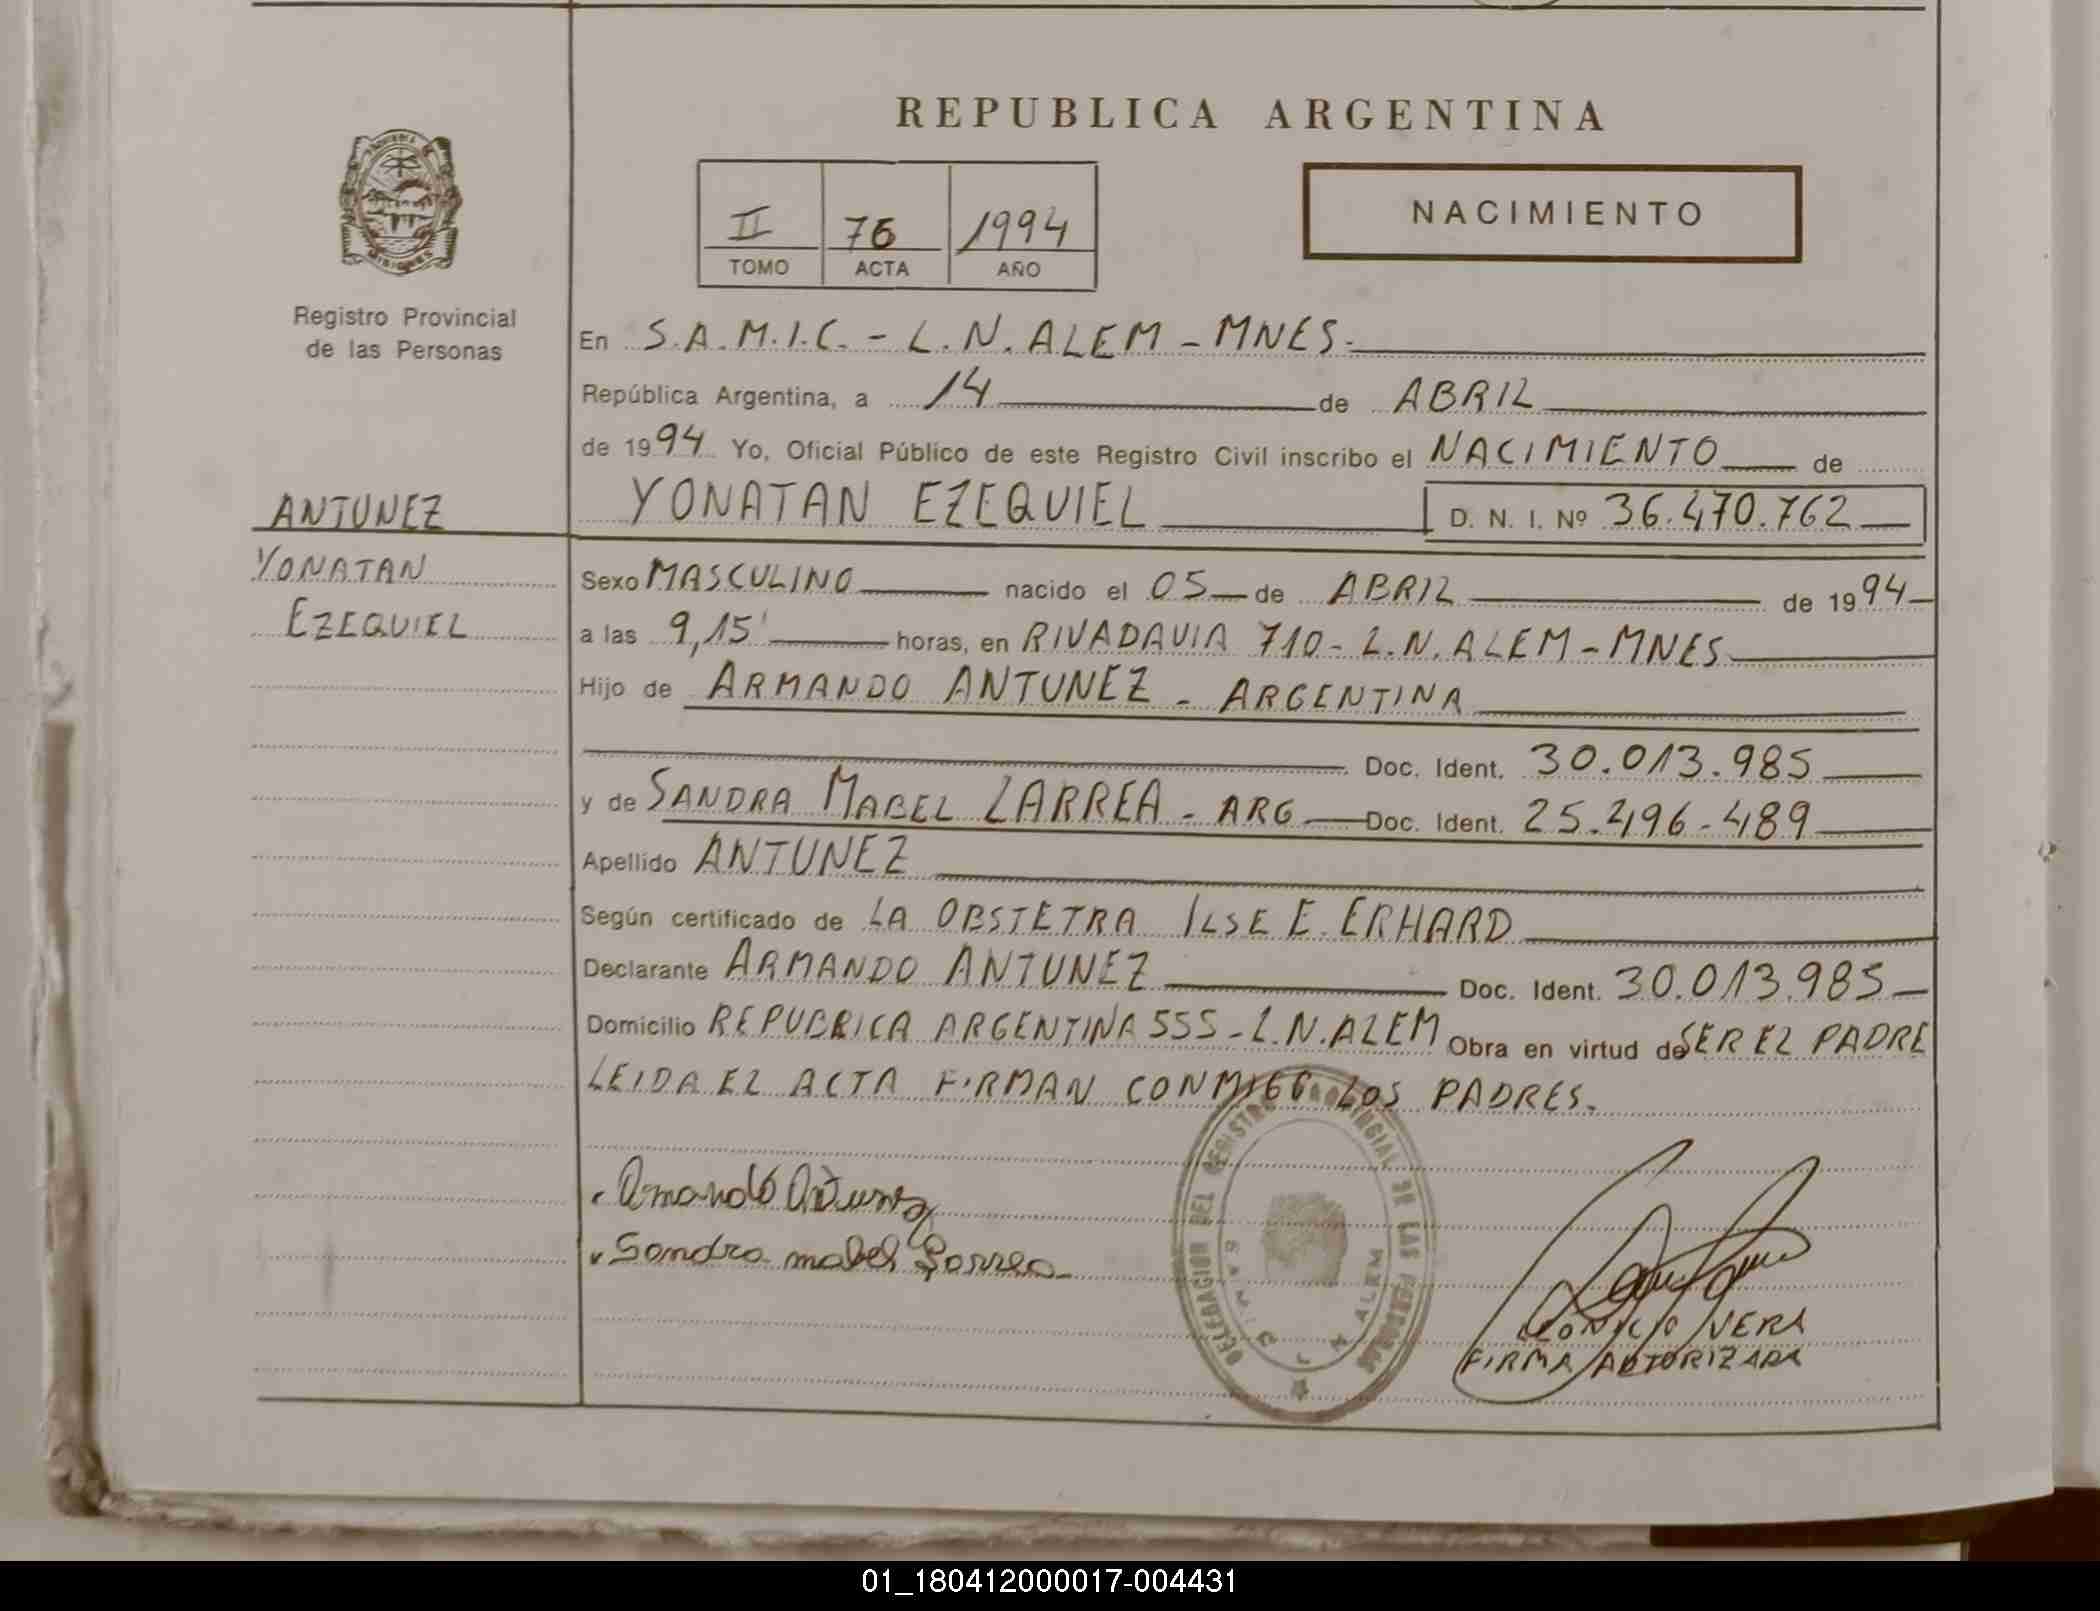 REPUBLICA ARGENTINA
II 76 1994
TOMO ACTA AÑO
NACIMIENTO
Registro Provincial
de las Personas
ANTUNEZ
YONATAN
EZEQUIEL
En S.A.M.I.C. - L.N. ALEM - MNES.
República Argentina, a 14 de ABRIL
de 1994 Yo, Oficial Público de este Registro Civil inscribo el NACIMIENTO de
YONATAN EZEQUIEL D. N. I. Nº 36.470.762
Sexo MASCULINO nacido el 05 de ABRIL de 1994
a las 9,15' horas, en RIVADAVIA 710 - L.N. ALEM - MNES
Hijo de ARMANDO ANTUNEZ - ARGENTINA
Doc. Ident. 30.013.985
y de SANDRA MABEL LARREA - ARG Doc. Ident. 25.496.489
Apellido ANTUNEZ
Según certificado de LA OBSTETRA ILSE E. ERHARD
Declarante ARMANDO ANTUNEZ Doc. Ident. 30.013.985
Domicilio REPUBRICA ARGENTINA 555 - L.N. ALEM Obra en virtud de SER EL PADRE
LEIDA EL ACTA FIRMAN CONMIGO LOS PADRES.
Armando Antunez
Sandra mabel Larrea
DELEGACION DEL REGISTRO PROVINCIAL DE LAS PERSONAS
L N ALEM
VERA
FIRMA AUTORIZADA
01_180412000017-004431